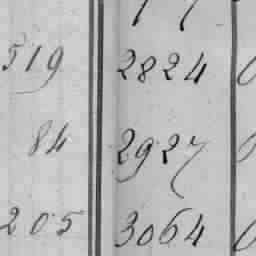 519 2824
84 2927
205 3064